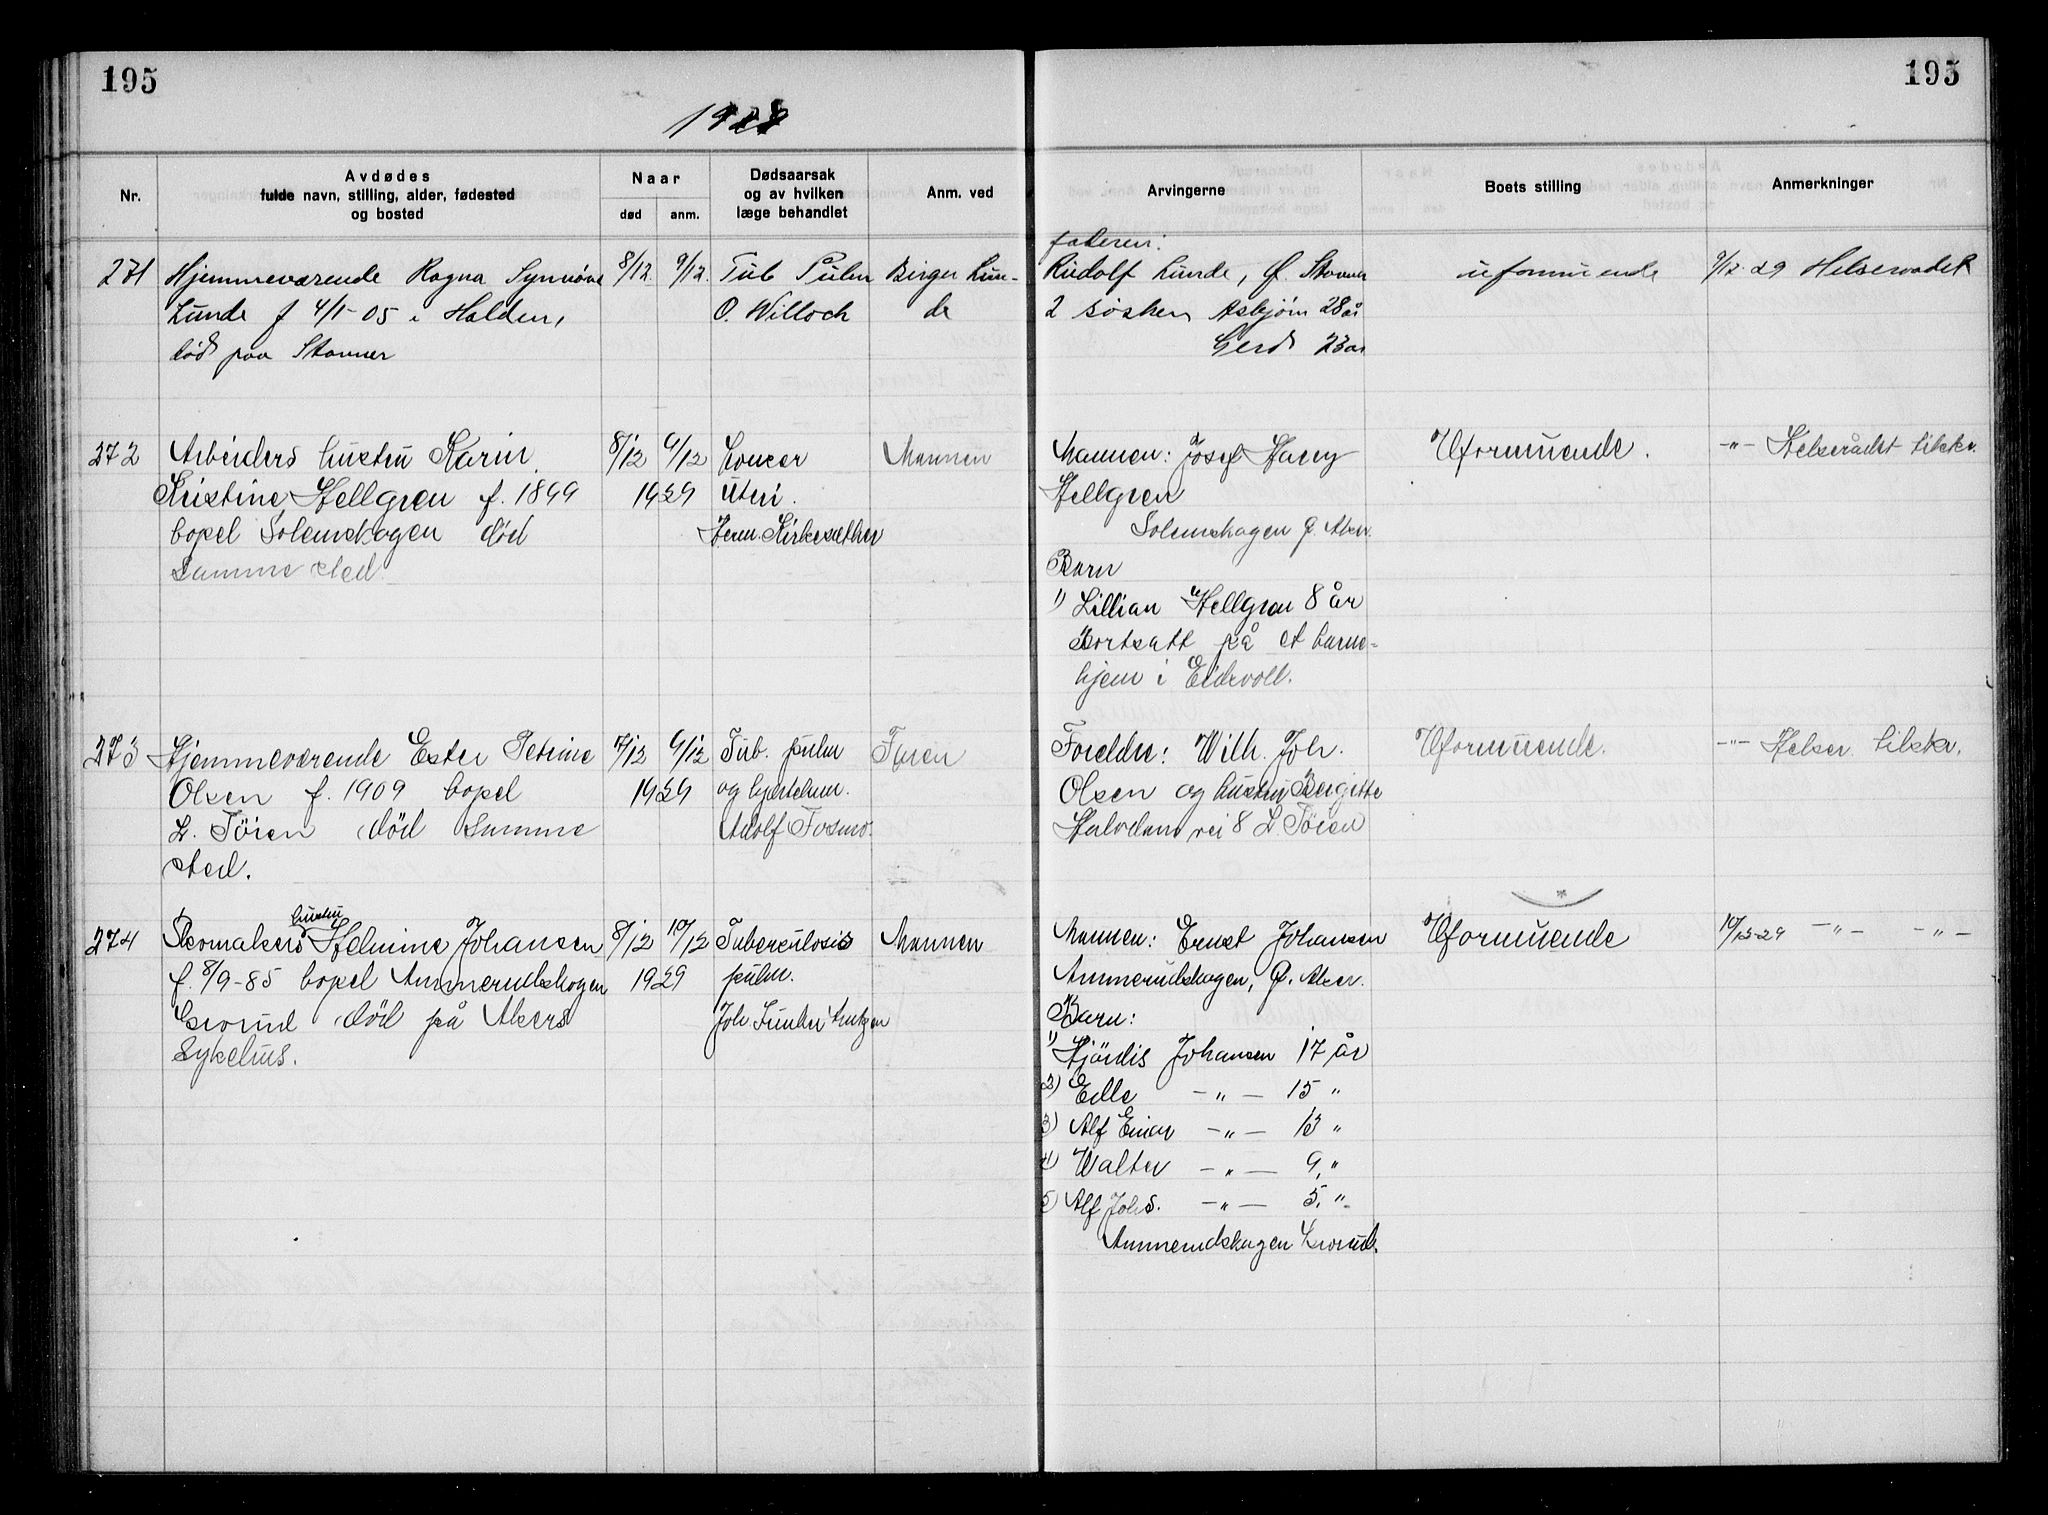 195
195
Nr.
Avdødes
fulde navn, stilling, alder, fødested
og bosted
Naar
død
anm.
Dødsaarsak
og av hvilken
læge behandlet
Anm. ved
Arvingerne
Boets stilling
Anmerkninger
271
Hjemmeværende Ragna Synnöve
Lunde f 4/1-05 i Halden,
död paa Stovner
8/12
9/12.
Tub Pulm
O. Willoch
Birger Lun-
de
faderen:
Rudolf Lunde, Ø. Stovner
2 søsken Asbjörn 28 år
Gerd 23 år
uformuende
9/12-29 Helseraadet
272
Arbeiders hustru Karin
Kristine Hellgren f. 1899
bopel Solemskogen död
samme sted.
8/12 9/12
1929
Cancer
uteri.
Herm. Kirkesæther
Mannen
Mannen: Josef Harry
Hellgren
Solemskogen Ø. Aker.
Barn
1) Lillian Hellgren 8 år
Bortsatt på et barne-
hjem i Eidsvoll.
Uformuende.
-"- Helserådet tilskr.
273
Hjemmeværende Ester Petrine
Olsen f. 1909 bopel
L. Töien död samme
sted.
7/12 9/12
1929
Tub. pulm
og hjertelam.
Adolf Fosmo.
Faren
Foreldre: Wilh. Joh.
Olsen og hustru Bergitte
Halvdans vei 8 L. Töien
Uformuende.
-"- Helser. tilskr.
274
hustru
Skomakers Helmine Johansen
f. 8/9-85 bopel Ammerudskogen
Grorud död på Akers
Sykehus.
8/12 10/12
1929
Tuberculosis
pulm.
Joh
Mannen
Mannen: Ernst Johansen
Ammerudskogen, Ø. Aker.
Barn:
1) Hjördis Johansen 17 år
2) Edle -"- 15 "
3) Alf Einar -"- 13 "
4) Walter -"- 9 "
5) Alf Johs. -"- 5 "
Ammerudskogen Grorud.
Uformuende
10/12-29 -"- -"-